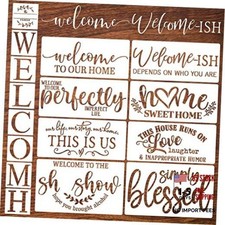 welcome
Welcome-ISH
WELCOMH
welcome
TO OUR HOME
Welcome-ISH
DEPENDS ON WHO YOU ARE
WELCOME TO OUR
perfectly
IMPERFECT LIFE
HOME
SWEET HOME
our life. our story. our home.
THIS IS US
THIS HOUSE RUNS ON
Love
laughter
& INAPPROPRIATE HUMOR
WELCOME TO THE
sh show
hope you brought alcohol
blessed